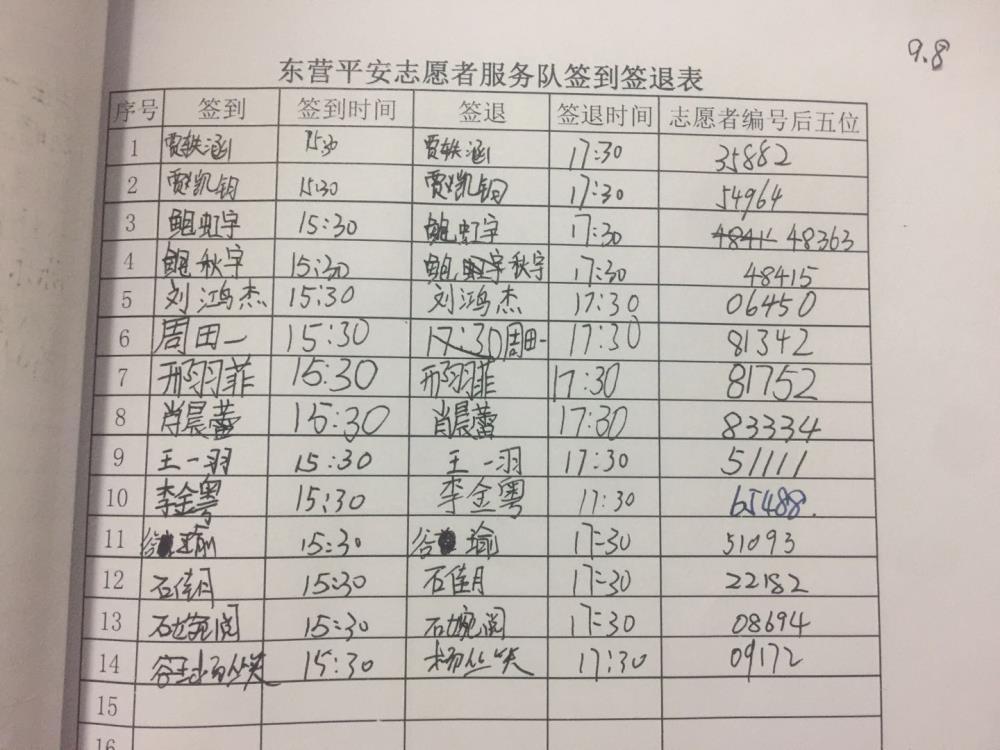 9.8
东营平安志愿者服务队签到签退表
序号 签到 签到时间 签退 签退时间 志愿者编号后五位
1 贾轶涵 15:30 贾轶涵 17:30 35882
2 贾凯钥 15:30 贾凯钥 17:30 54964
3 鲍虹宇 15:30 鲍虹宇 17:30 48363
4 鲍秋宇 15:30 鲍秋宇 17:30 48415
5 刘鸿杰 15:30 刘鸿杰 17:30 06450
6 周田一 15:30 17:30周田一 17:30 81342
7 邢羽菲 15:30 邢羽菲 17:30 81752
8 肖晨蕾 15:30 肖晨蕾 17:30 83334
9 王一羽 15:30 王一羽 17:30 51111
10 李金粤 15:30 李金粤 17:30 65488.
11 谷瑜 15:30 谷瑜 17:30 51093
12 石佳月 15:30 石佳月 17:30 22182
13 石婉阅 15:30 石婉阅 17:30 08694
14 杨丝笑 15:30 杨丝笑 17:30 09172
15
16